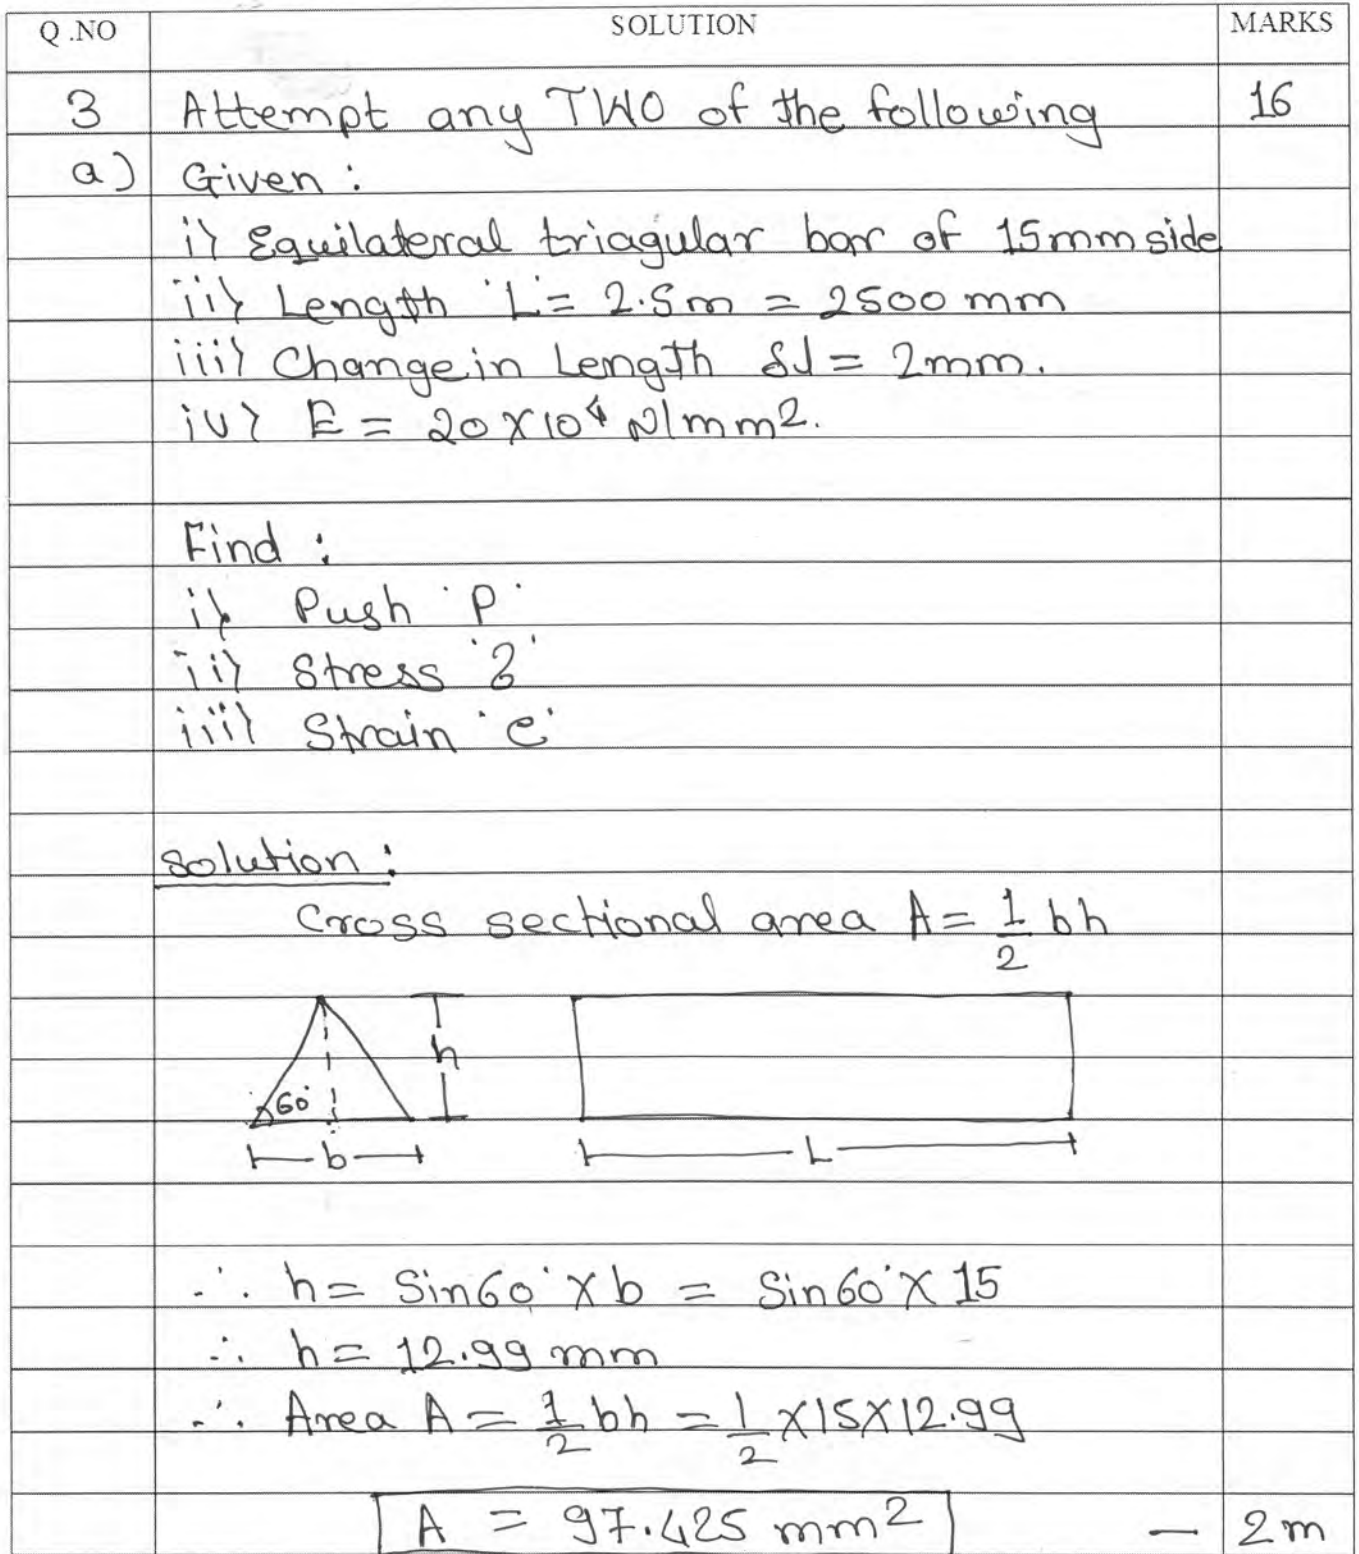 Q.NO SOLUTION MARKS
3 Attempt any TWO of the following 16
a) Given :
i) Equilateral triagular bar of 15mm side
ii) Length 'L' = 2.5m = 2500 mm
iii) Change in Length δl = 2mm.
iv) E = 20 X 10⁴ N/mm2.
Find :
i) Push 'P'
ii) Stress 'σ'
iii) Strain 'e'
Solution :
Cross sectional area A = 1/2 bh
h
60°
b L
∴ h = Sin60° X b = Sin60° X 15
∴ h = 12.99 mm
∴ Area A = 1/2 bh = 1/2 X 15 X 12.99
A = 97.425 mm2 — 2m